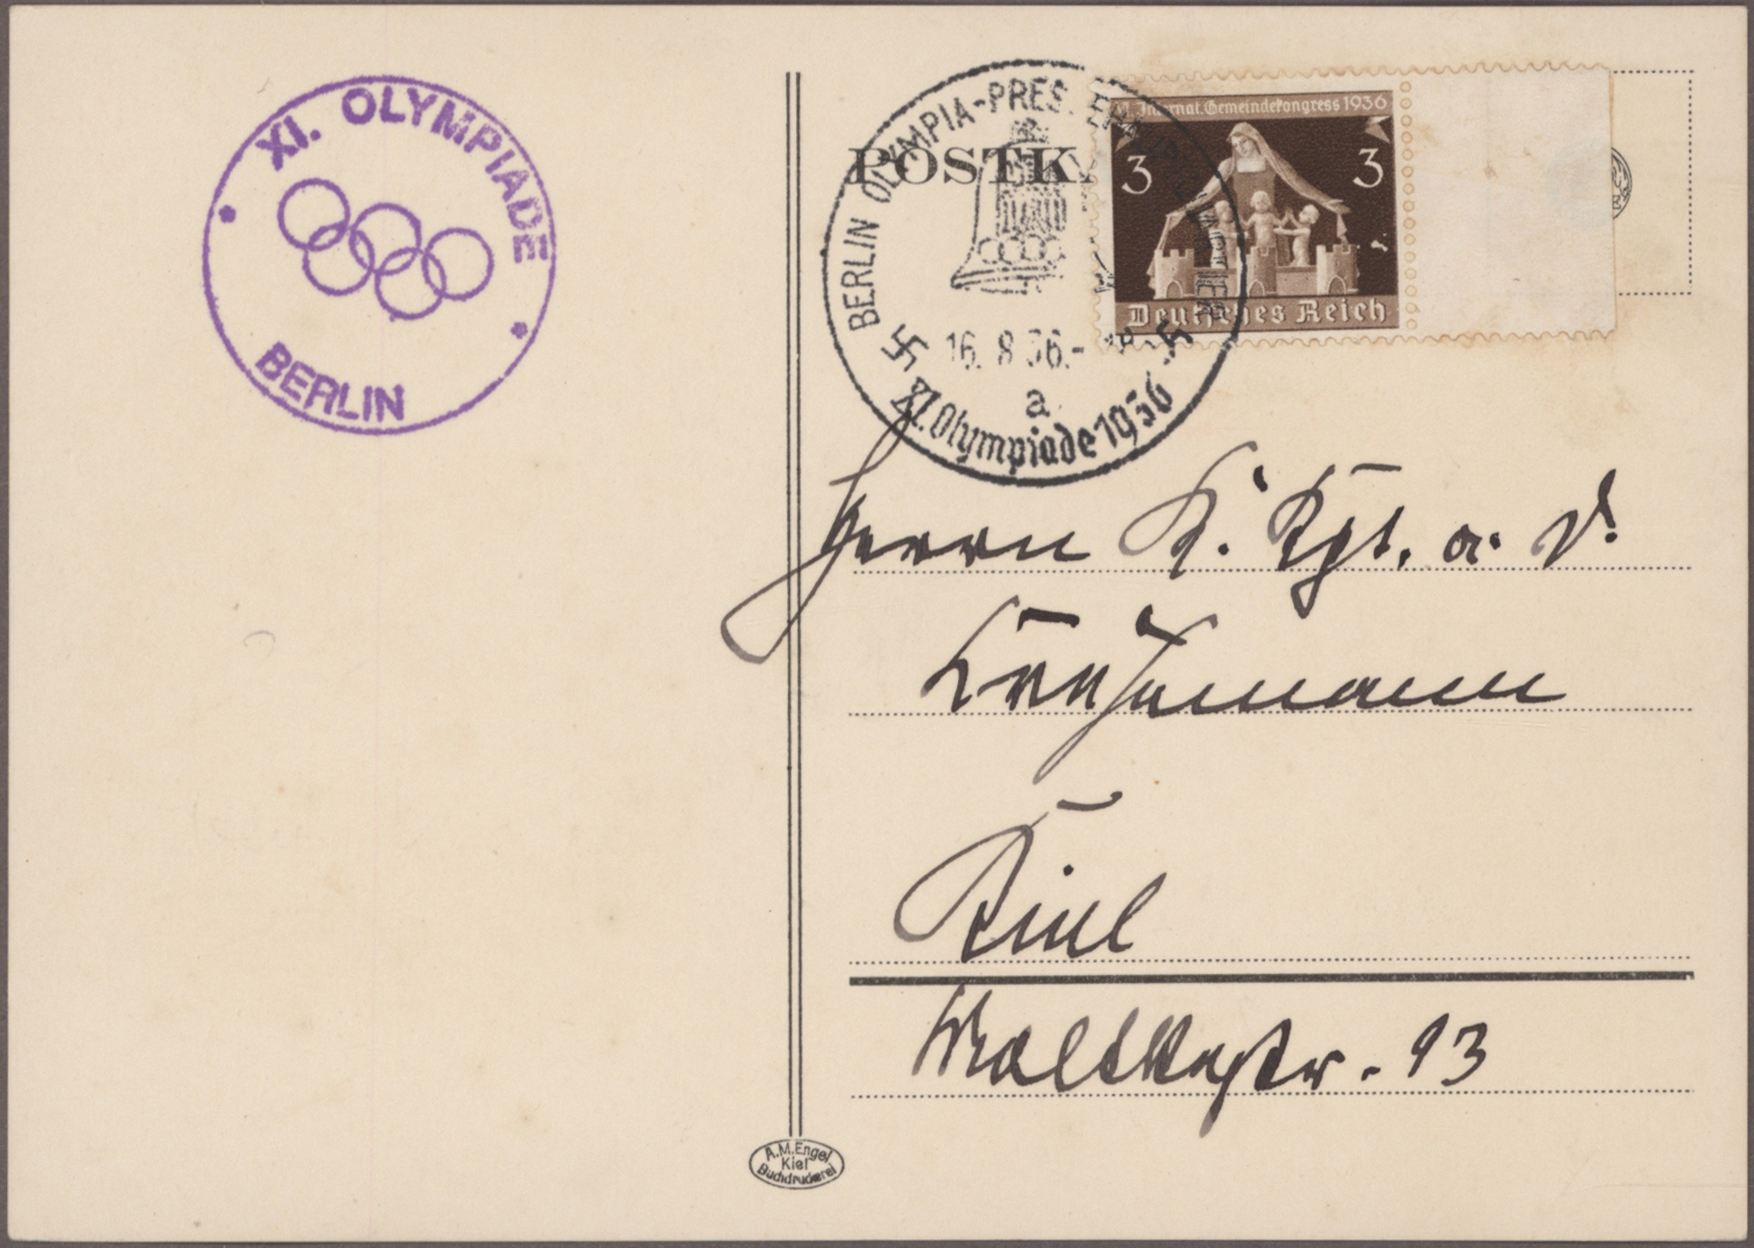 XI. OLYMPIADE
BERLIN
POSTK
BERLIN OLYMPIA-PRES
16. 8 36.-
a
XI. Olympiade 1936
VI. Internat. Gemeindekongress 1936
3 3
Deutsches Reich
Herrn K. Kpt. a. D.
Kiel
Moltkestr. 93
A.M.Engel
Kiel
Buchdruckerei